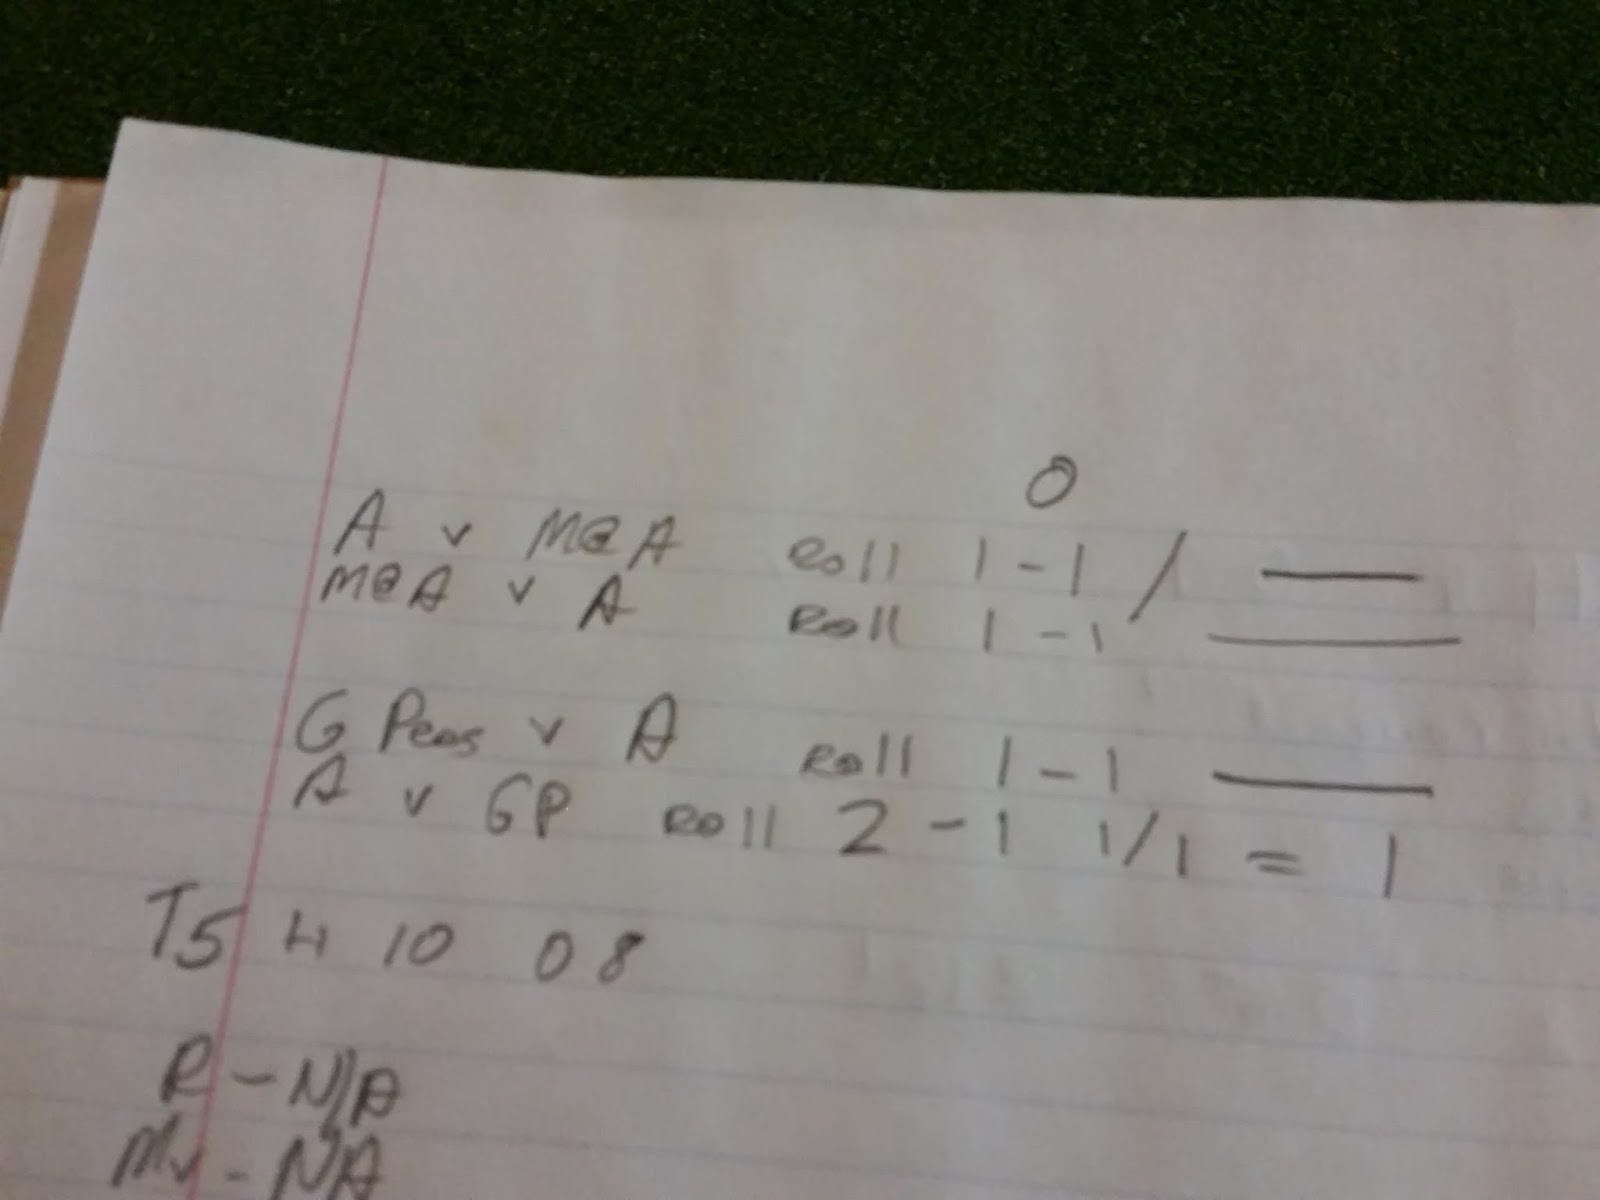 0
A v M@A Roll 1 - 1 / —
M@A v A Roll 1 - 1 —
G Peas v A Roll 1 - 1 —
A v GP Roll 2 - 1 1/1 = 1
T5 4 10 08
R - N/A
Mv - N/A